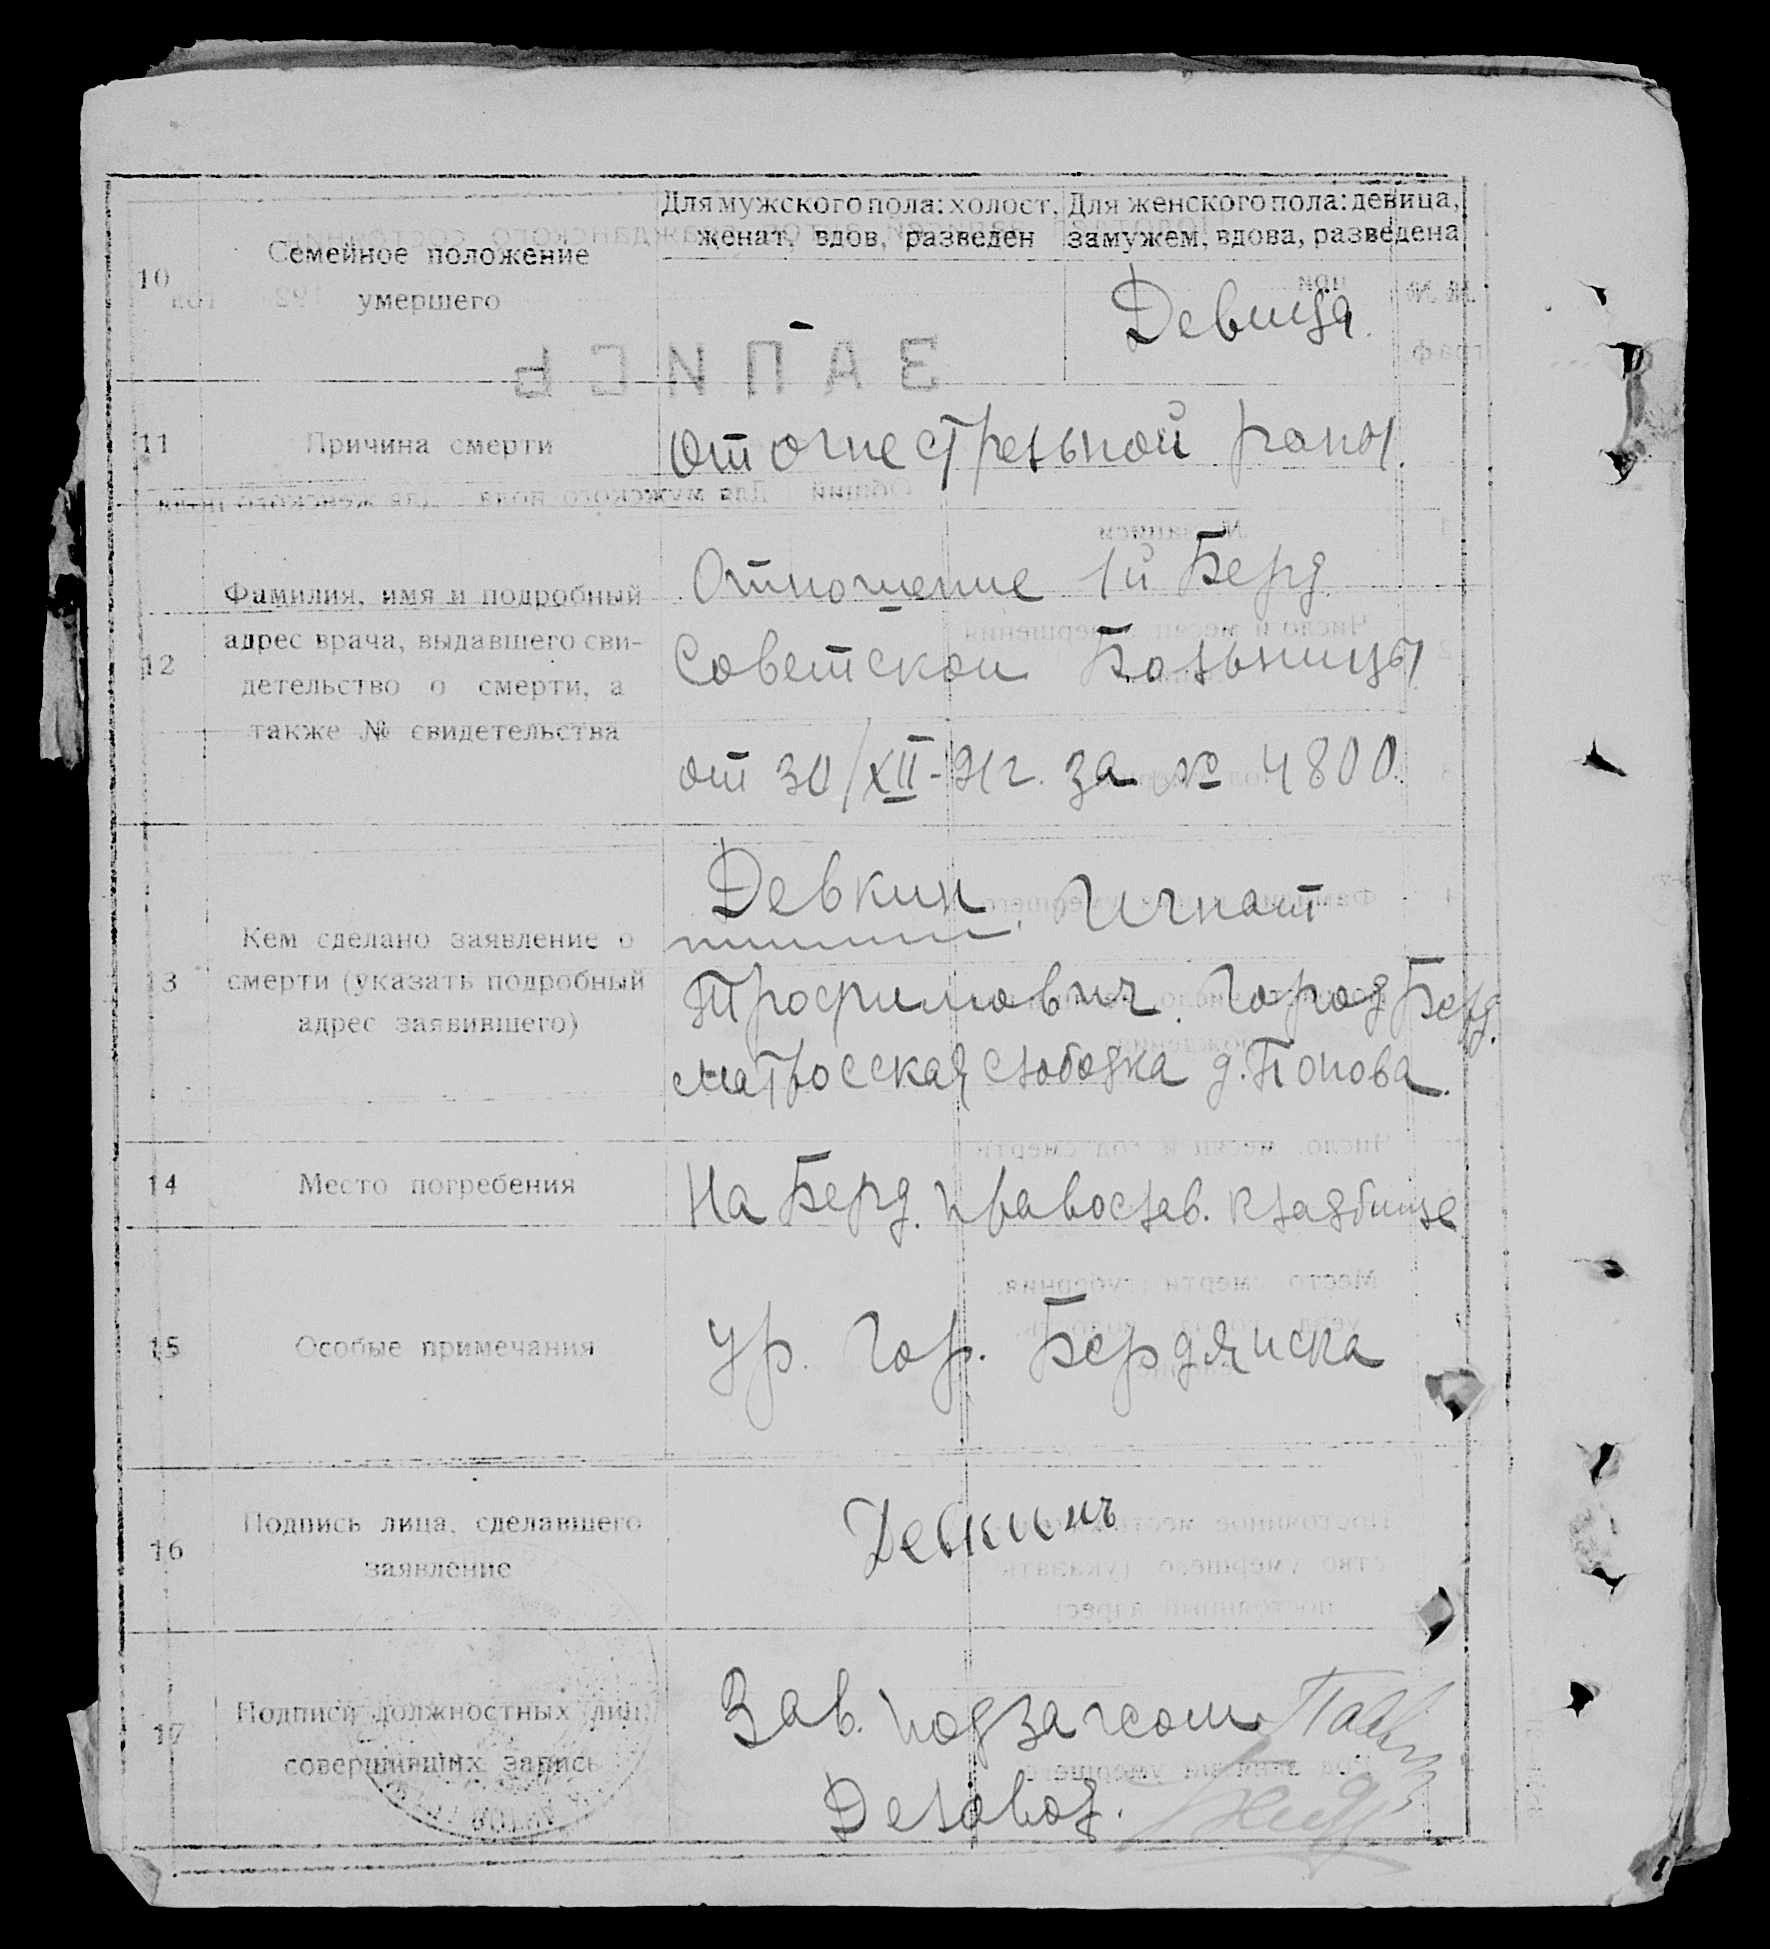 Для мужского пола: холост, женат, вдов, разведен
Для женского пола: девица, замужем, вдова, разведена
10
Семейное положение
умершего
Девица.
11
Причина смерти
От огнестрельной раны.
12
Фамилия, имя и подробный
адрес врача, выдавшего сви-
детельство о смерти, а
также № свидетельства
Отношение 1й Берд.
Советской Больницы
от 30/XII-21г. за № 4800.
13
Кем сделано заявление о
смерти (указать подробный
адрес заявившего)
Девкин, Игнат
Трофимович. Город Берд.
Матросская слободка д. Попова.
14
Место погребения
На Берд. православ. кладбище
15
Особые примечания
Ур. Гор. Бердянска
16
Подпись лица, сделавшего
заявление
Девкинъ
17
Подписи должностных лиц,
совершивших запись
Зав. подзагсом
Деловод.